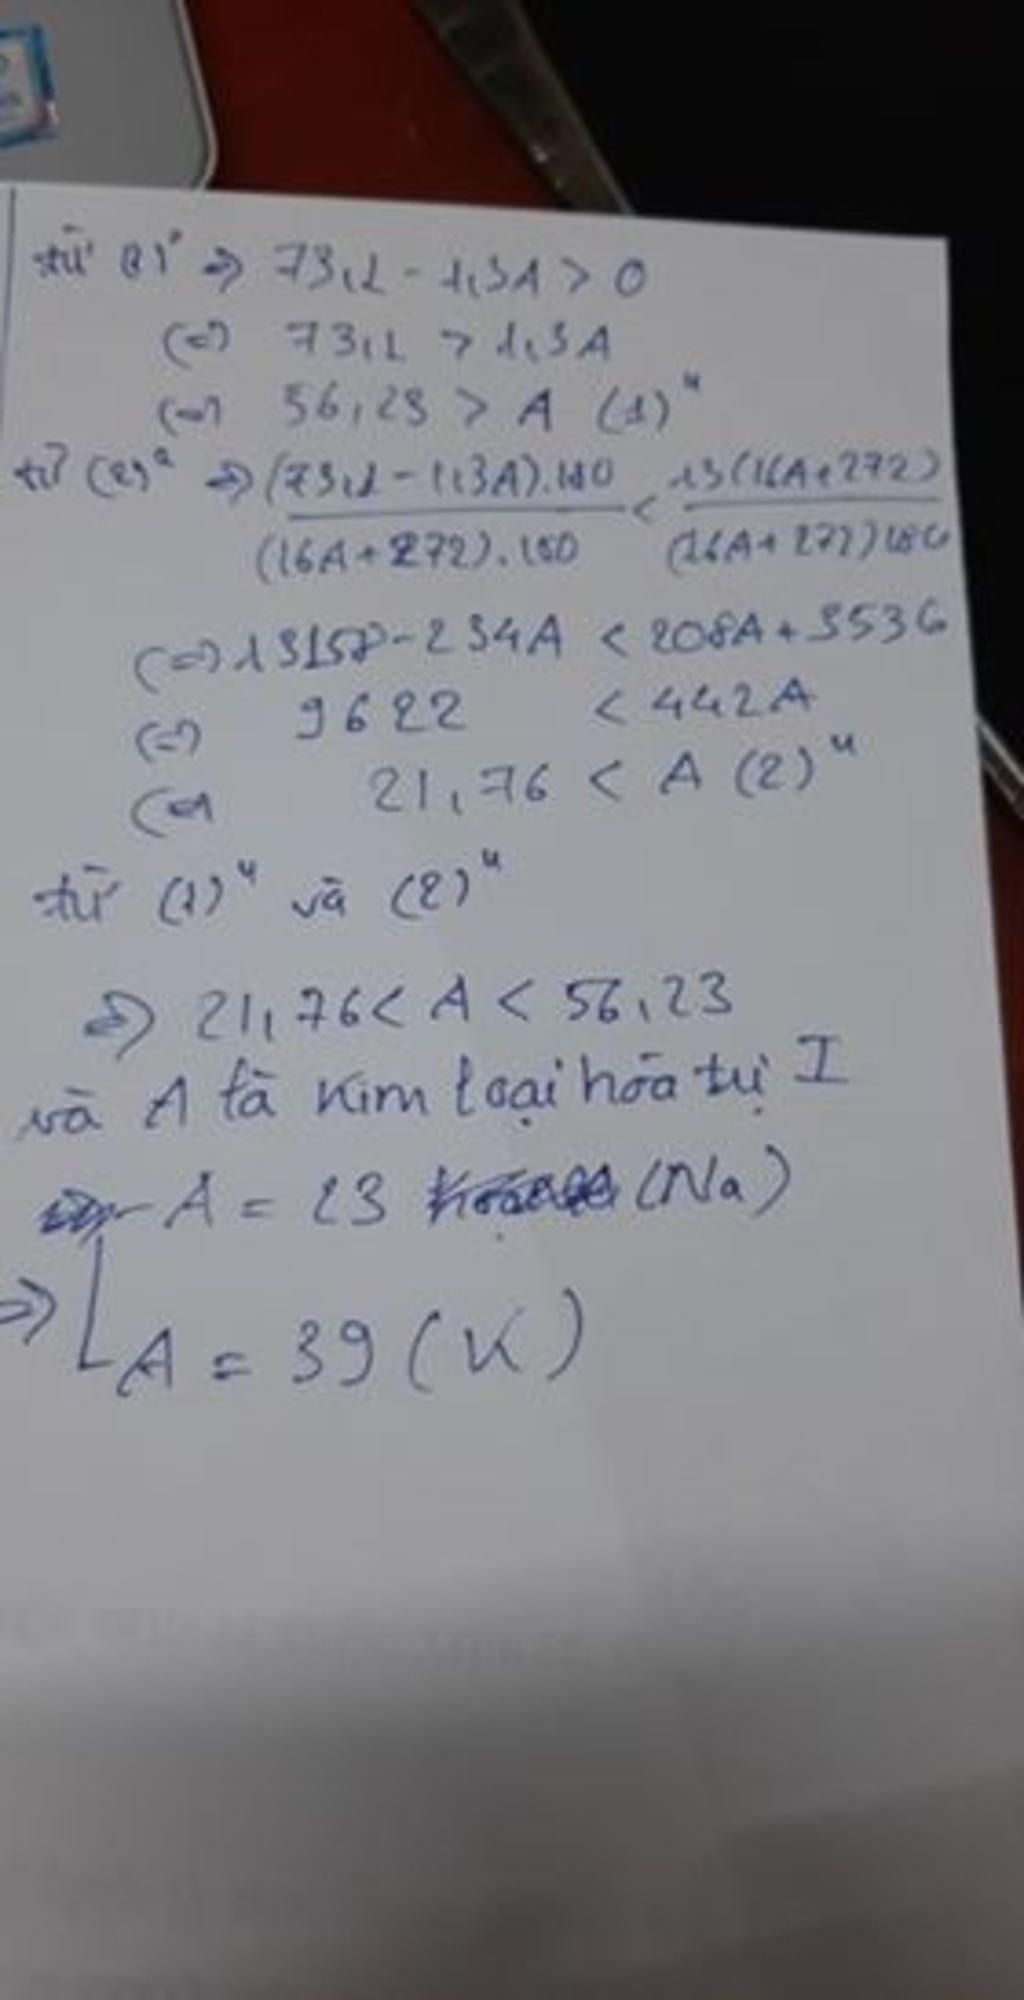 từ (2)' => 73,1 - 1,3A > 0
(=) 73,1 > 1,3A
(=) 56,23 > A (1)"
từ (2)" => (73,1 - 1,3A).180 / (16A + 272).180 < 13(16A + 272) / (16A + 272)180
(=) 13158 - 234A < 208A + 3536
(=) 9622 < 442A
(=) 21,76 < A (2)"
từ (1)" và (2)"
=> 21,76 < A < 56,23
và A là kim loại hóa trị I
A = 23 (Na)
=> A = 39 (K)